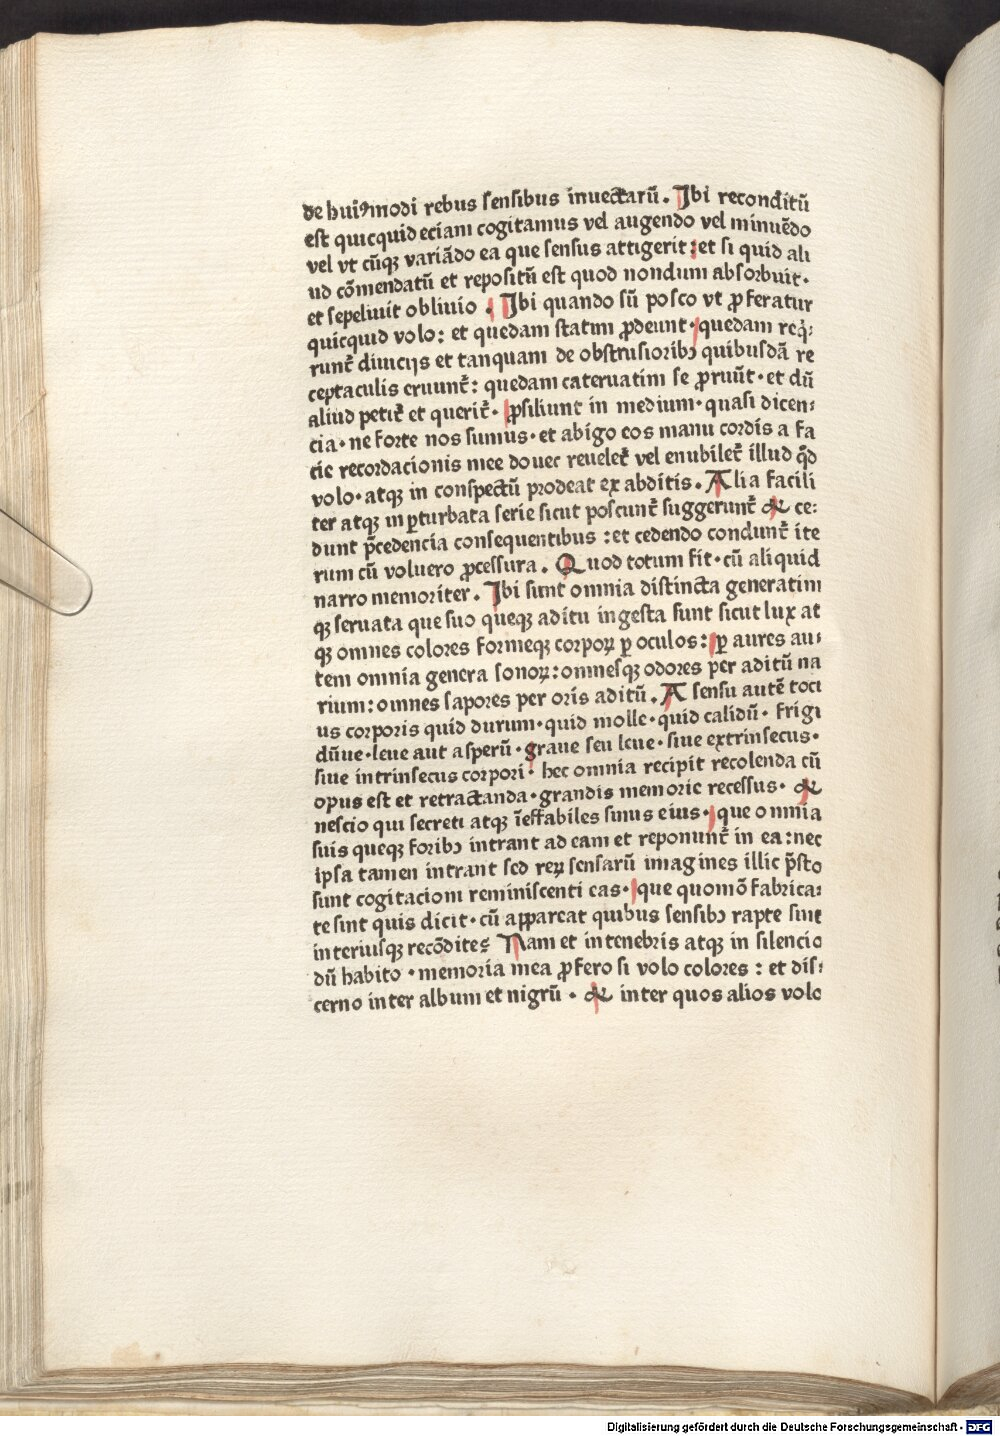 de huiꝰmodi rebus sensibus inuectarū. Ibi reconditū
est quicquid eciam cogitamus vel augendo vel minuēdo
vel vt cūqꝫ variādo ea que sensus attigerit : et si quid ali
ud cōmendatū et repositū est quod nondum absorbuit·
et sepeliuit obliuio . Ibi quando sū posco vt ꝓferatur
quicquid volo: et quedam statim ꝓdeunt·quedam req̇:
runt̄ diucijs et tanquam de obstrusioribꝫ quibusdā re
ceptaculis eruunt̄: quedam cateruatim se ꝓruūt·et dū
aliud petit̄ et querit̄· ꝓsiliunt in medium·quasi dicen:
cia·ne forte nos sumus·et abigo eos manu cordis a fa
cie recordacionis mee donec reuelet̄ vel enubilet̄ illud q̄d
volo·atqꝫ in conspectū prodeat ex abditis. Alia facili
ter atqꝫ inꝑturbata serie sicut poscunt̄ suggerunt̄ & ce:
dunt p̄cedencia consequentibus : et cedendo condunt̄ ite
rum cū voluero ꝓcessura. Quod totum fit·cū aliquid
narro memoriter. Ibi sunt omnia distincta generatim
qꝫ seruata que suo queqꝫ aditu ingesta sunt sicut lux at
qꝫ omnes colores formeqꝫ corpoꝝ ꝑ oculos: ꝑ aures au:
tem omnia genera sonoꝝ: omnesqꝫ odores per aditū na
rium: omnes sapores per oris aditū. A sensu autē toci
us corporis quid durum·quid molle·quid calidū· frigi
dūue·leue aut asperū·graue seu leue·siue extrinsecus·
siue intrinsecus corpori· hec omnia recipit recolenda cū
opus est et retractanda·grandis memorie recessus· &
nescio qui secreti atqꝫ īeffabiles sinus eius·que omnia
suis queqꝫ foribꝫ intrant ad eam et reponunt̄ in ea: nec
ipsa tamen intrant sed reꝝ sensarū imagines illic p̄sto
sunt cogitacioni reminiscenti eas·que quomō fabrica:
te sint quis dicit·cū appareat quibus sensibꝫ rapte sint
interiusqꝫ recōdite Nam et in tenebris atqꝫ in silencio
dū habito ·memoria mea ꝓfero si volo colores : et dis:
cerno inter album et nigrū · & inter quos alios volo
Digitalisierung gefördert durch die Deutsche Forschungsgemeinschaft - DFG